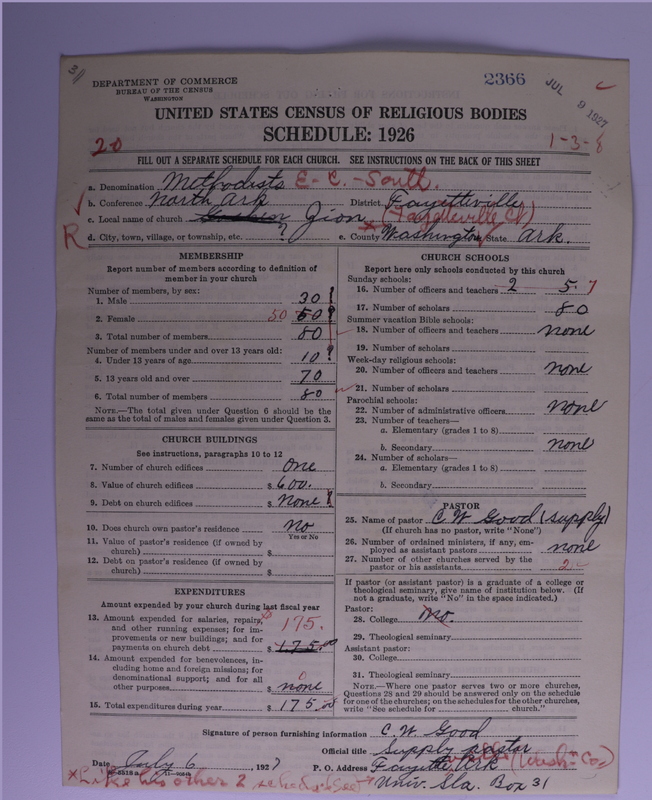 3
DEPARTMENT OF COMMERCE
BUREAU OF THE CENSUS
WASHINGTON
2366
JUL 9 1927
UNITED STATES CENSUS OF RELIGIOUS BODIES
SCHEDULE: 1926
20
1-3-8
FILL OUT A SEPARATE SCHEDULE FOR EACH CHURCH. SEE INSTRUCTIONS ON THE BACK OF THIS SHEET
a. Denomination Methodists E-C.-South.
b. Conference North Ark District Fayetteville
c. Local name of church Zion (Fayetteville Ct)
R
d. City, town, village, or township, etc. ? e. County Washington State Ark.
MEMBERSHIP
Report number of members according to definition of
member in your church
Number of members, by sex:
1. Male 30
2. Female 50 50
3. Total number of members 80
Number of members under and over 13 years old:
4. Under 13 years of age 10
5. 13 years old and over 70
6. Total number of members 80
NOTE.—The total given under Question 6 should be
same as the total of males and females given under Question 3.
CHURCH BUILDINGS
See instructions, paragraphs 10 to 12
7. Number of church edifices one
8. Value of church edifices $ 600.
9. Debt on church edifices $ None
10. Does church own pastor's residence No
Yes or No
11. Value of pastor's residence (if owned by
church) $
12. Debt on pastor's residence (if owned by
church) $
EXPENDITURES
Amount expended by your church during last fiscal year
13. Amount expended for salaries, repairs,
and other running expenses; for im-
provements or new buildings; and for
payments on church debt $ 175.00
175.
14. Amount expended for benevolences, in-
cluding home and foreign missions; for
denominational support; and for all
other purposes $ none
0
15. Total expenditures during year $ 175.00
CHURCH SCHOOLS
Report here only schools conducted by this church
Sunday schools:
16. Number of officers and teachers 2 5 7
17. Number of scholars 80
Summer vacation Bible schools:
18. Number of officers and teachers none
19. Number of scholars
Week-day religious schools:
20. Number of officers and teachers none
21. Number of scholars
Parochial schools:
22. Number of administrative officers none
23. Number of teachers—
a. Elementary (grades 1 to 8)
b. Secondary none
24. Number of scholars—
a. Elementary (grades 1 to 8)
b. Secondary
PASTOR
25. Name of pastor C W Good (supply)
(If church has no pastor, write "None")
26. Number of ordained ministers, if any, em-
ployed as assistant pastors none
27. Number of other churches served by the
pastor or his assistants 2
If pastor (or assistant pastor) is a graduate of a college or
theological seminary, give name of institution below. (If
not a graduate, write "No" in the space indicated.)
Pastor:
28. College No.
29. Theological seminary
Assistant pastor:
30. College
31. Theological seminary
NOTE.—Where one pastor serves two or more churches,
Questions 28 and 29 should be answered only on the schedule
for one of the churches; on the schedules for the other churches,
write "See schedule for church."
Signature of person furnishing information C. W. Good
Official title Supply pastor
Date July 6 1927 P. O. Address Fayette Ark
ville (Wash. Co.)
Univ. Sta. Box 31
* Like his other 2 scheds.